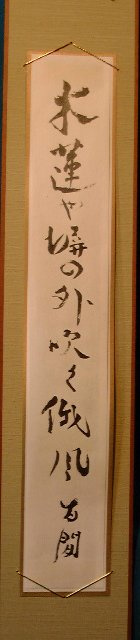 木蓮や塀の外吹く俄風 百閒